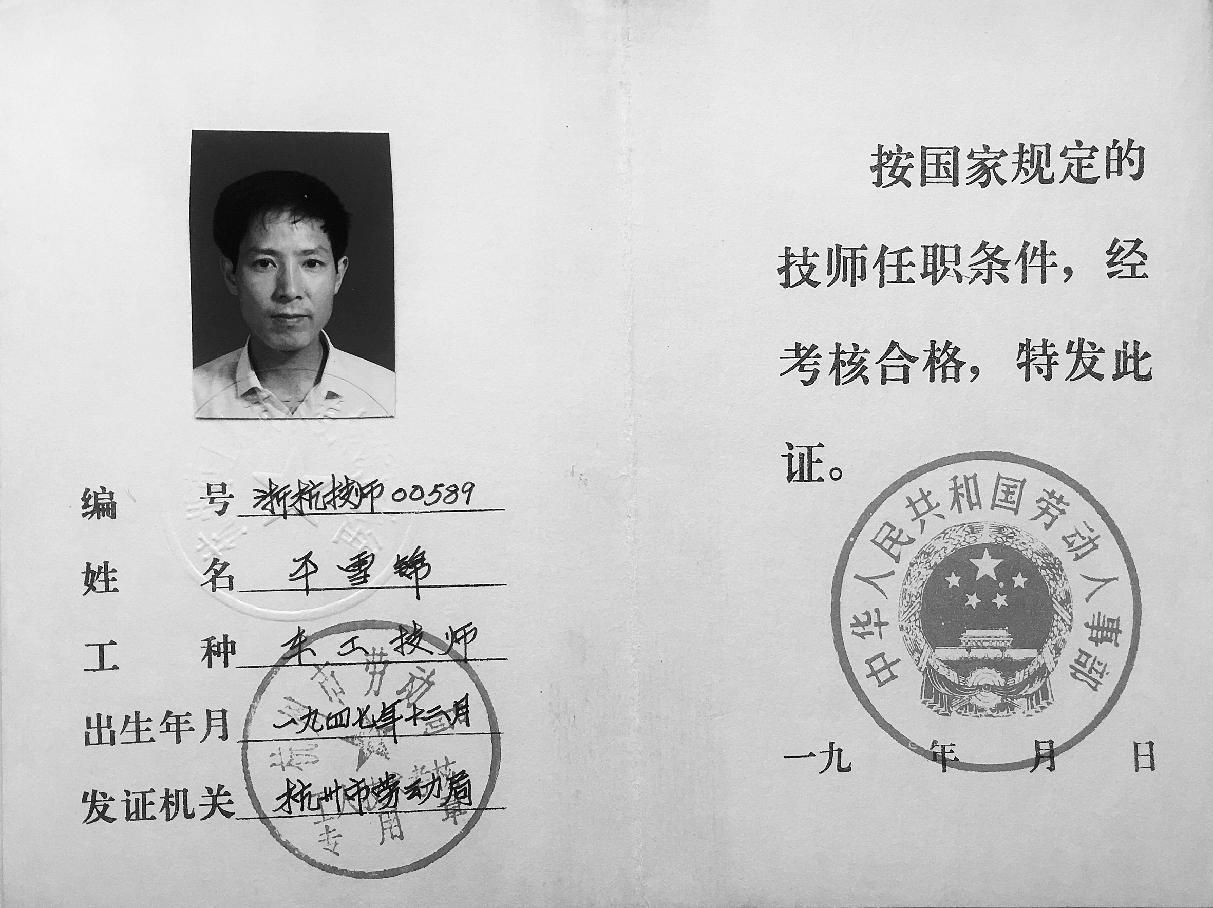 编 号 浙杭技师00589
姓 名 平雪锦
工 种 车工技师
出生年月 一九四七年十二月
发证机关 杭州市劳动局
杭州市劳动局
专用章
按国家规定的
技师任职条件，经
考核合格，特发此
证。
中华人民共和国劳动人事部
一九 年 月 日